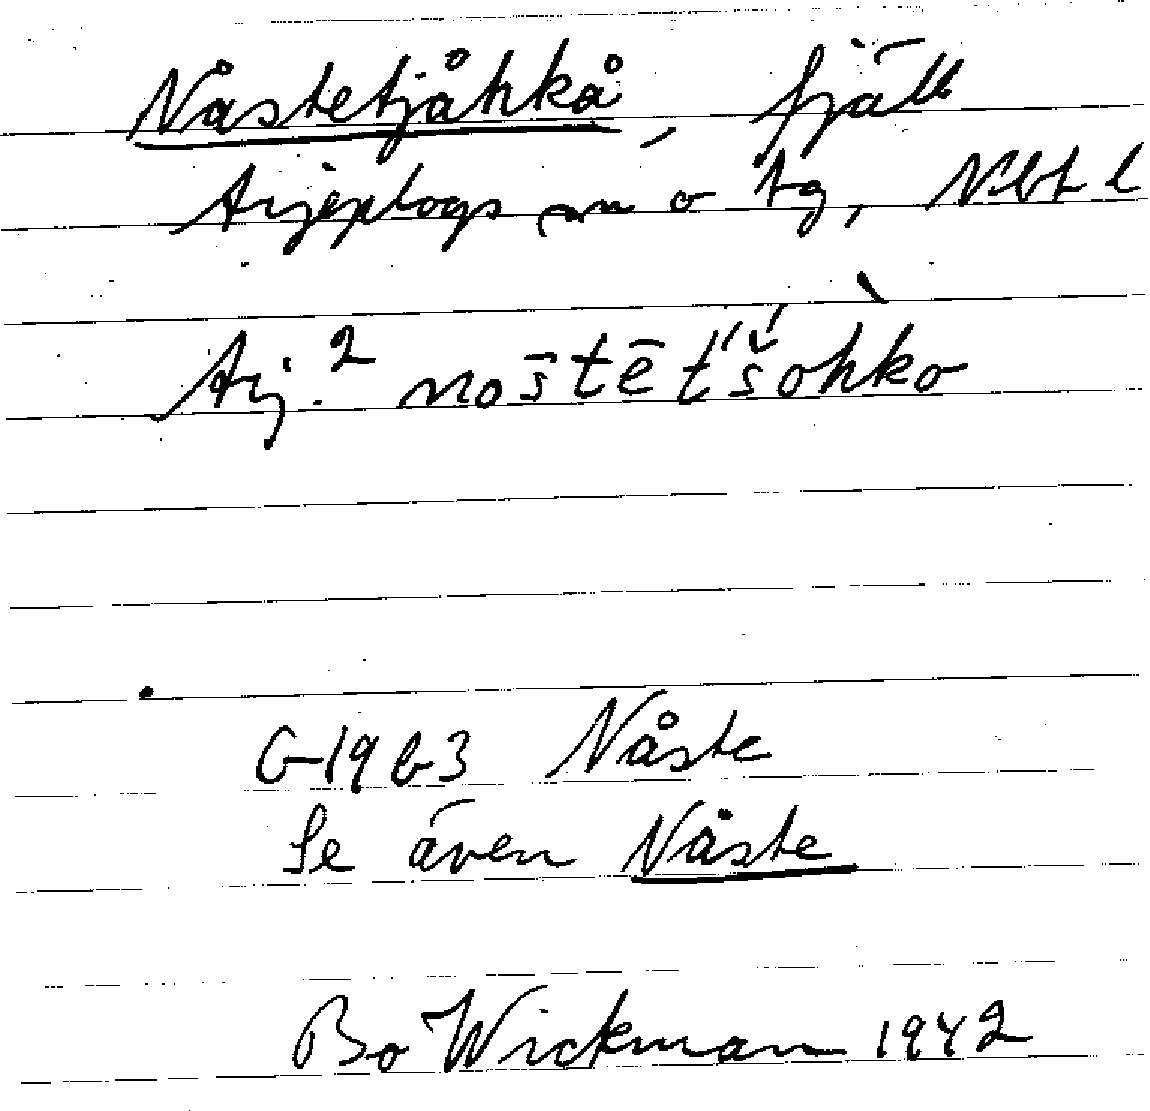 Nåstetjåhkå, fjäll
Arjeplogs sn o tg, Nbt l
Arj.² nos̄tēt́š́ohko
G 1963 Nåste
Se även Nåste
Bo Wickman 1942